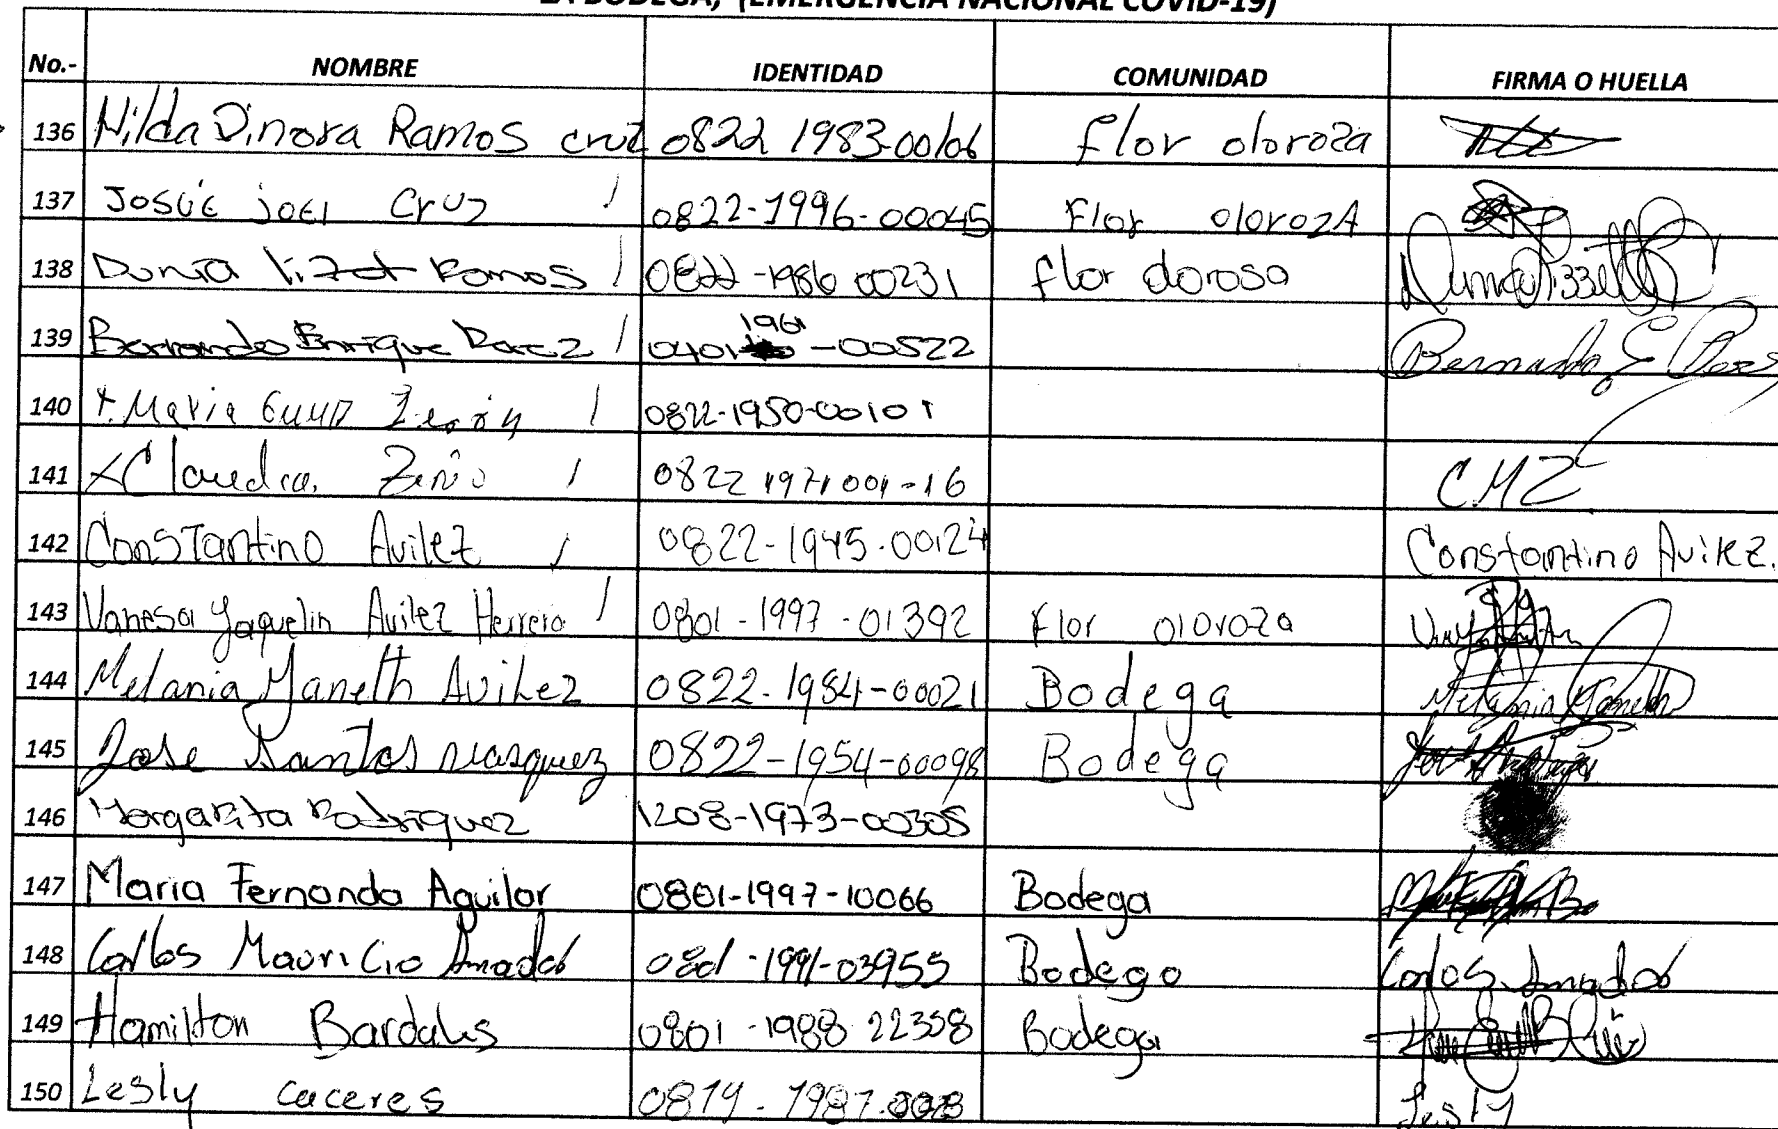 LA BODEGA, (EMERGENCIA NACIONAL COVID-19)
No.- NOMBRE IDENTIDAD COMUNIDAD FIRMA O HUELLA
136 Hilda Dinora Ramos cruz 0822 1983-00106 flor oloroza
137 Josué joel Cruz 0822-1996-00045 Flor olorozA
138 Dunia lizet Ramos 0822-1986 00231 flor olorosa
139 Enrique 0401 1961 -00522 Bernardo E
140 Maria 0822-1950-00101
141 Claudia 0822 1971001-16 CMZ
142 ConsTantino Avilez 0822-1945-00124 Constantino Avilez.
143 Vanesa Yaquelin Avilez Herrera 0801-1997-01392 Flor oloroza
144 Melania Yaneth Avilez 0822-1984-00021 Bodega Melania Yaneth
145 Jose Santos vasquez 0822-1954-00098 Bodega
146 Margarita Rodriguez 1208-1973-00305
147 Maria Fernanda Aguilar 0801-1997-10066 Bodega
148 Carlos Mauricio Amador 0801-1991-03955 Bodega Carlos Amador
149 Hamilton Bardales 0801-1988 22358 Bodega
150 Lesly caceres 0819-1987 Lesly